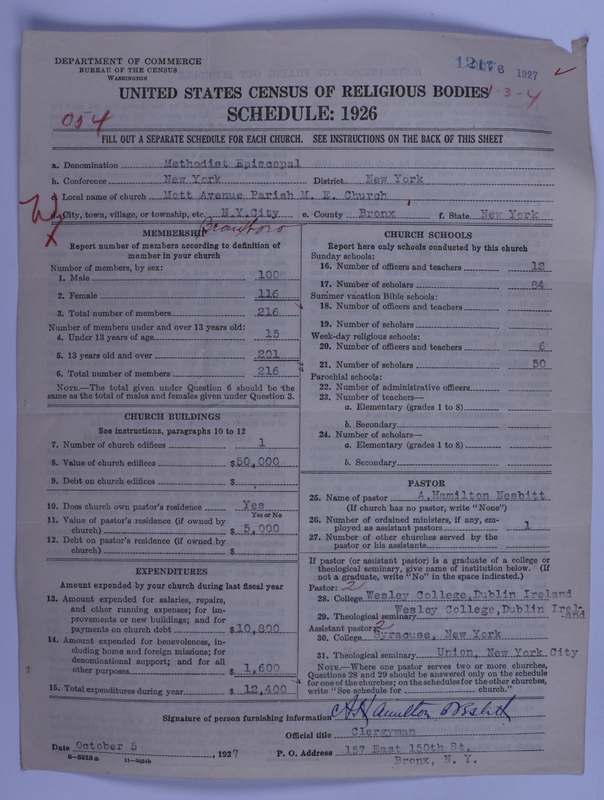 DEPARTMENT OF COMMERCE
BUREAU OF THE CENSUS
WASHINGTON
1927
UNITED STATES CENSUS OF RELIGIOUS BODIES
1-3-4
SCHEDULE: 1926
054
FILL OUT A SEPARATE SCHEDULE FOR EACH CHURCH. SEE INSTRUCTIONS ON THE BACK OF THIS SHEET
a. Denomination Methodist Episcopal
b. Conference New York District New York
c. Local name of church Mott Avenue Parish M. E. Church
d. City, town, village, or township, etc. N.Y.City e. County Bronx f. State New York
MEMBERSHIP
Report number of members according to definition of
member in your church
Number of members, by sex:
1. Male 100
2. Female 116
3. Total number of members 216
Number of members under and over 13 years old:
4. Under 13 years of age 15
5. 13 years old and over 201
6. Total number of members 216
NOTE.—The total given under Question 6 should be the
same as the total of males and females given under Question 3.
CHURCH BUILDINGS
See instructions, paragraphs 10 to 12
7. Number of church edifices 1
8. Value of church edifices $50,000
9. Debt on church edifices $
10. Does church own pastor's residence Yes
Yes or No
11. Value of pastor's residence (if owned by
church) $ 5,000
12. Debt on pastor's residence (if owned by
church) $
EXPENDITURES
Amount expended by your church during last fiscal year
13. Amount expended for salaries, repairs,
and other running expenses; for im-
provements or new buildings; and for
payments on church debt $10,800
14. Amount expended for benevolences, in-
cluding home and foreign missions; for
denominational support; and for all
other purposes $ 1,600
15. Total expenditures during year $ 12,400
CHURCH SCHOOLS
Report here only schools conducted by this church
Sunday schools:
16. Number of officers and teachers 12
17. Number of scholars 84
Summer vacation Bible schools:
18. Number of officers and teachers
19. Number of scholars
Week-day religious schools:
20. Number of officers and teachers 6
21. Number of scholars 50
Parochial schools:
22. Number of administrative officers
23. Number of teachers—
a. Elementary (grades 1 to 8)
b. Secondary
24. Number of scholars—
a. Elementary (grades 1 to 8)
b. Secondary
PASTOR
25. Name of pastor A.Hamilton Nesbitt
(If church has no pastor, write "None")
26. Number of ordained ministers, if any, em-
ployed as assistant pastors 1
27. Number of other churches served by the
pastor or his assistants
If pastor (or assistant pastor) is a graduate of a college or
theological seminary, give name of institution below. (If
not a graduate, write "No" in the space indicated.)
Pastor: 2
28. College Wesley College,Dublin Ireland
29. Theological seminary Wesley College,Dublin Irel-
and
Assistant pastor: 2
30. College Syracuse, New York
31. Theological seminary Union, New York City
NOTE.—Where one pastor serves two or more churches,
Questions 28 and 29 should be answered only on the schedule
for one of the churches; on the schedules for the other churches,
write "See schedule for church."
Signature of person furnishing information A Hamilton Nesbitt
Official title Clergyman
Date October 5, 1927 P. O. Address 157 East 150th St.
Bronx, N. Y.